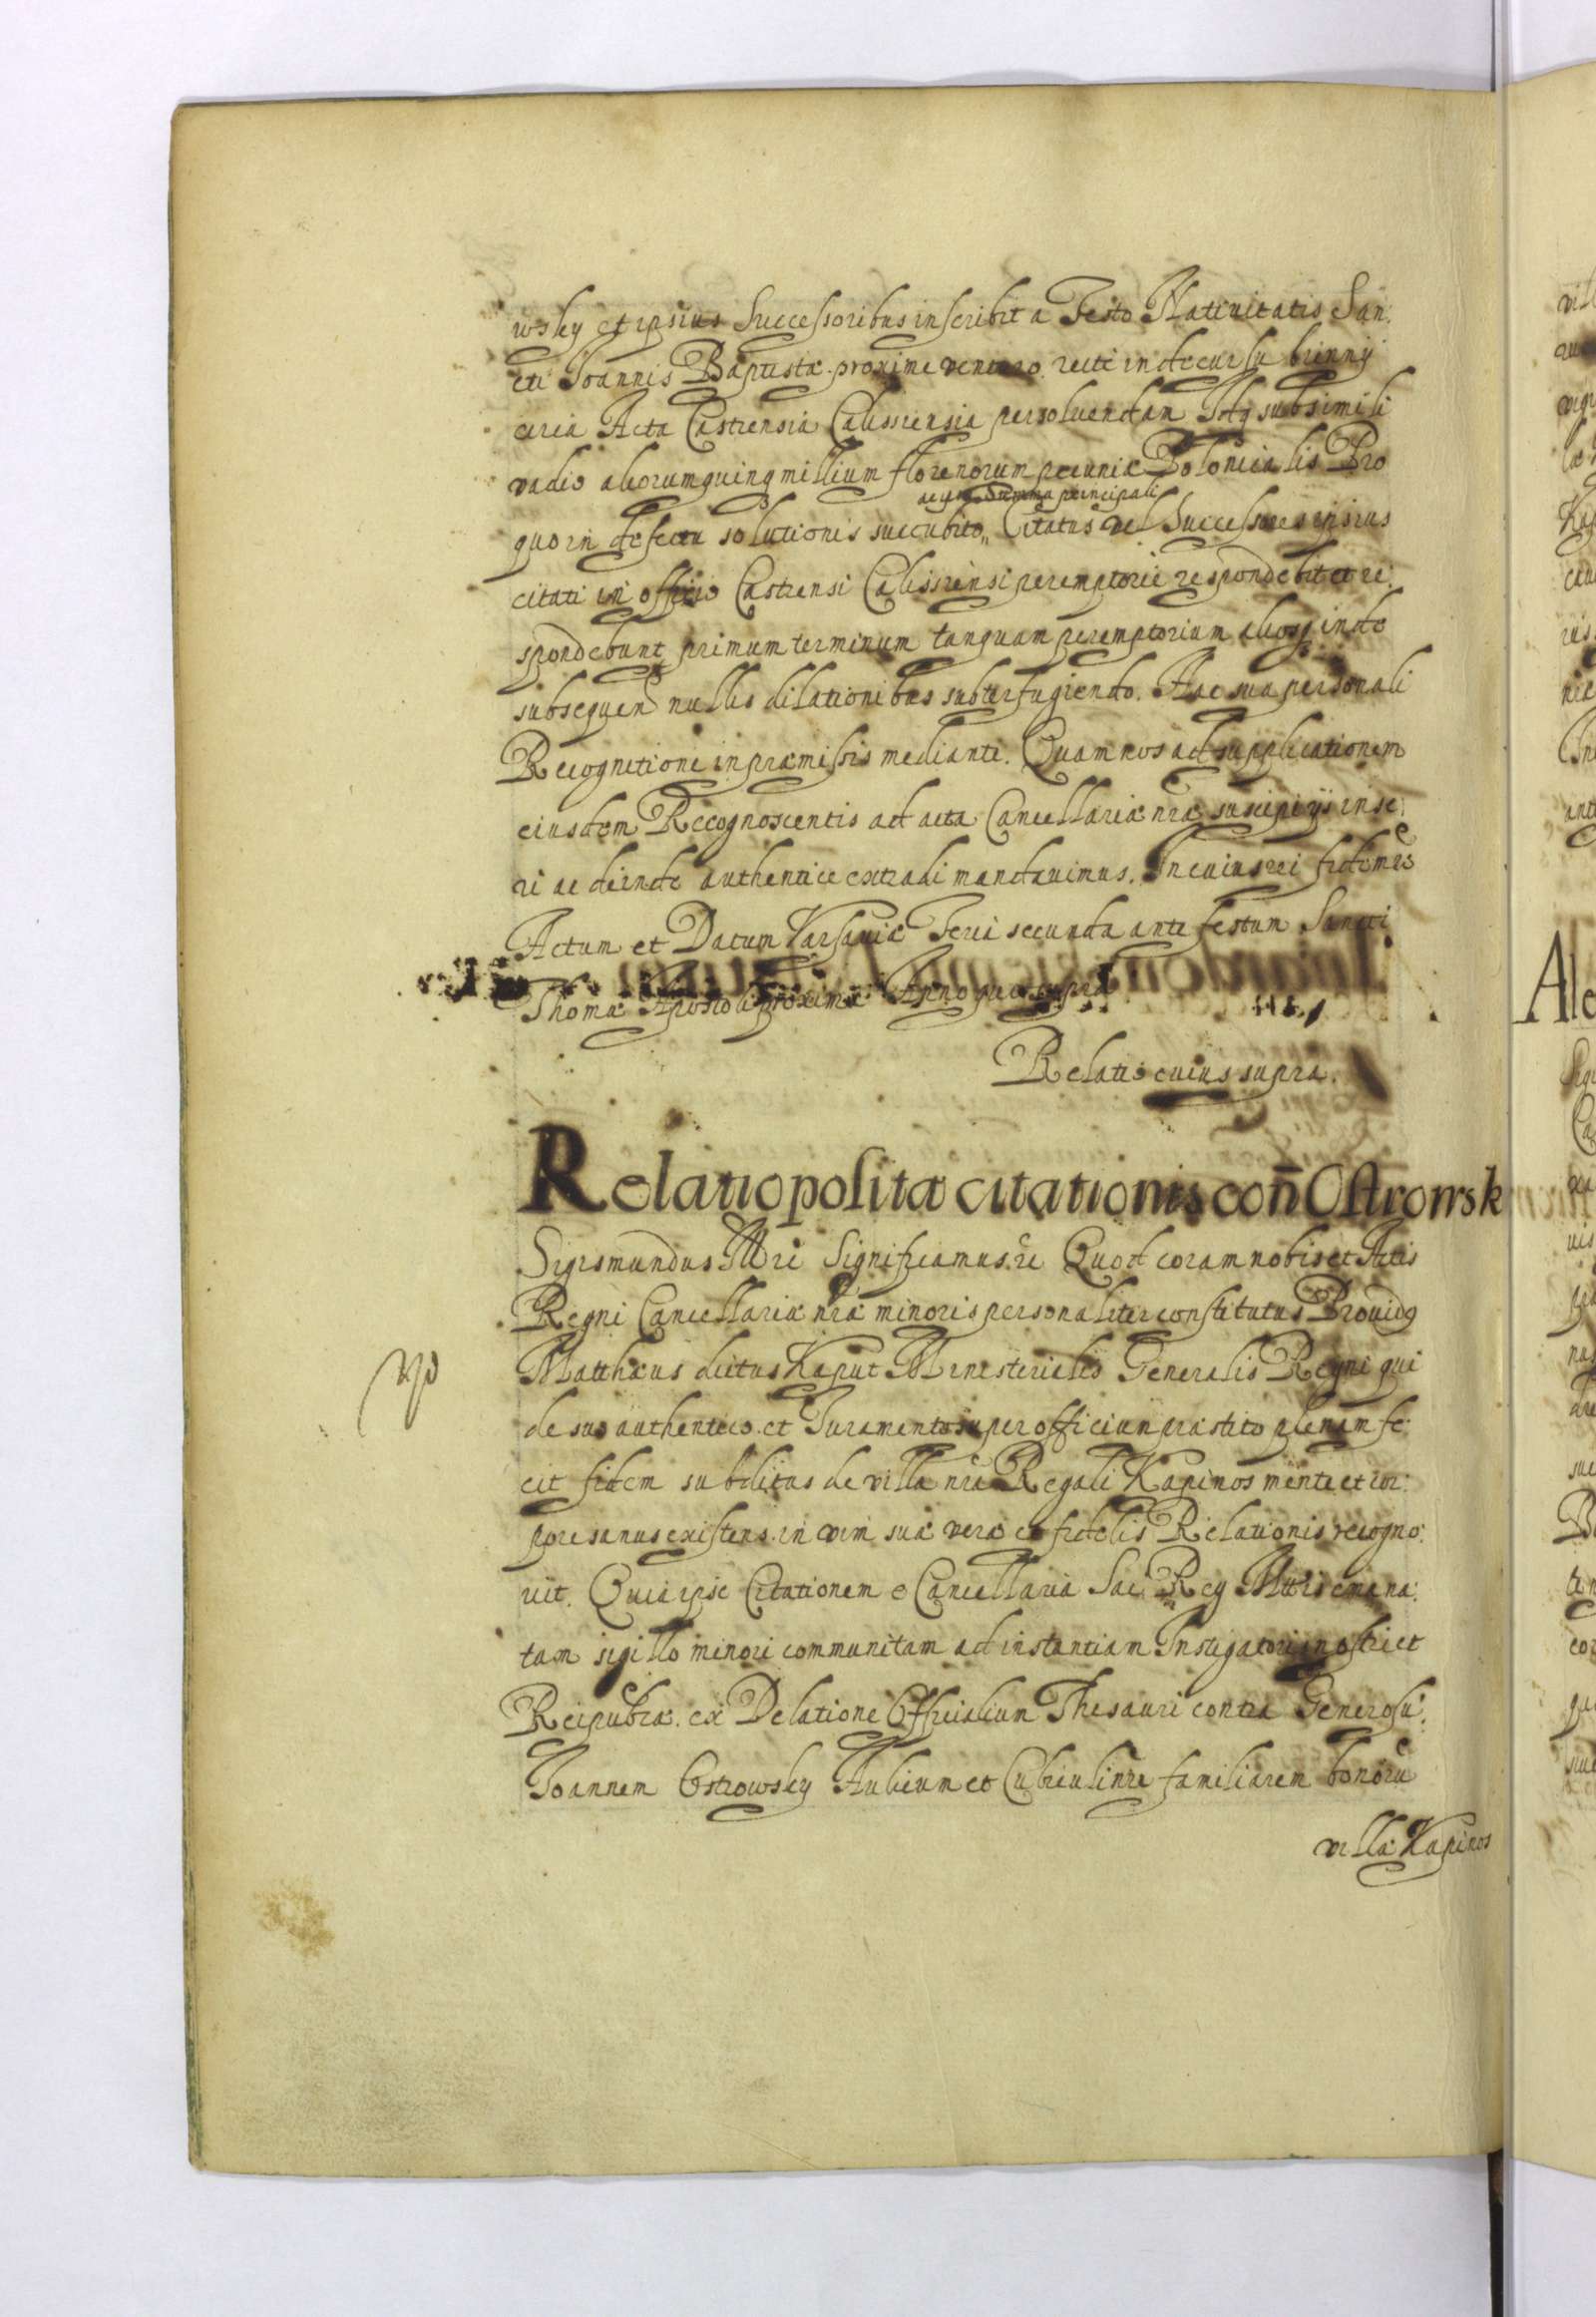 wsky et ipsius Successoribus inscribit a Festo Natiuitatis San:
cti Joannis Baptistæ proxime venturo recte in decursu biennij
circa Acta Castrensia Calissiensia persoluendam Idq subsimili
vadio aliorum quinq millium florenorum pecuniæ Polonicalis Pro
ac ipsa Summa principali
quo in defectu solutionis succubito,, Citatus vel Successores ipsius
citati in officio Castrensi Calissiensi peremptorie respondebit et re:
spondebunt primum terminum tanquam peremptorium aliosq inde
subsequen nullis dilationibus subterfugiendo. Hac sua personali
Recognitione in præmissis mediante. Quam nos ad supplicationem
eiusdem Recognoscentis ad acta Cancellariæ nræ suscipi ijs inse:
ri ac deinde authentice extradi mandauimus. In cuius rei fidem &c
Actum et Datum Varsauiæ Feria secunda ante festum Sancti
Thomæ Apostoli proxima Anno quo supra
Relatio cuius supra.
Relatio positæ citationis con Ostrowsk
Sigismundus III Dei Significamus &c Quod coram nobis et Actis
Regni Cancellariæ nræ minoris personaliter constitutus Prouidq
Matthæus dictus Kaput Ministerialis Generalis Regni qui
de suo authentico et Juramento super officium præstito plenam fe:
cit fidem subditus de villa nra Regali Kapinos mente et cor:
pore sanus existens in vim suæ veræ et fidelis Relationis recogno:
uit. Quia ipse Citationem e Cancellaria Sac Reg Mttis emana:
tam sigillo minori communitam ad instantiam Instigatoris nostri et
Reipubcæ. ex Delatione Officialium Thesauri contra Generosu:
Joannem Ostrowsky Aulicum et Cubiculi nri familiarem bonoru
villæ Kapinos